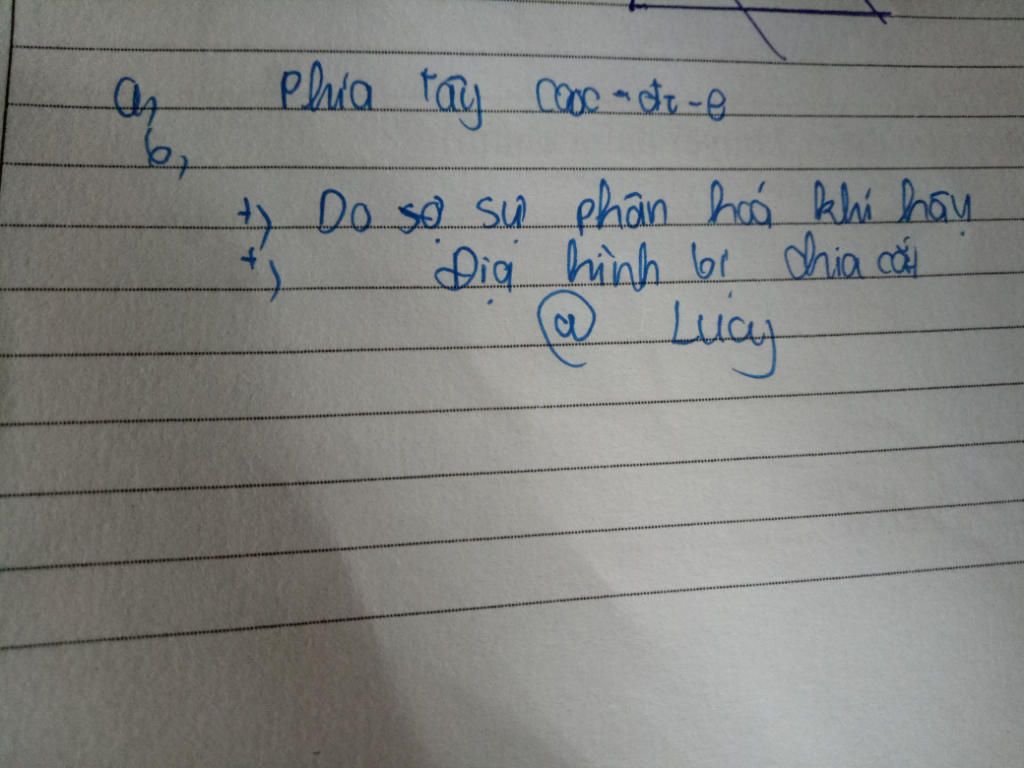 a, Phía tây cooc-đi-e
b,
+) Do sợ sự phân hoá khí hậu
+) Địa hình bị chia cắt
@ Lucy